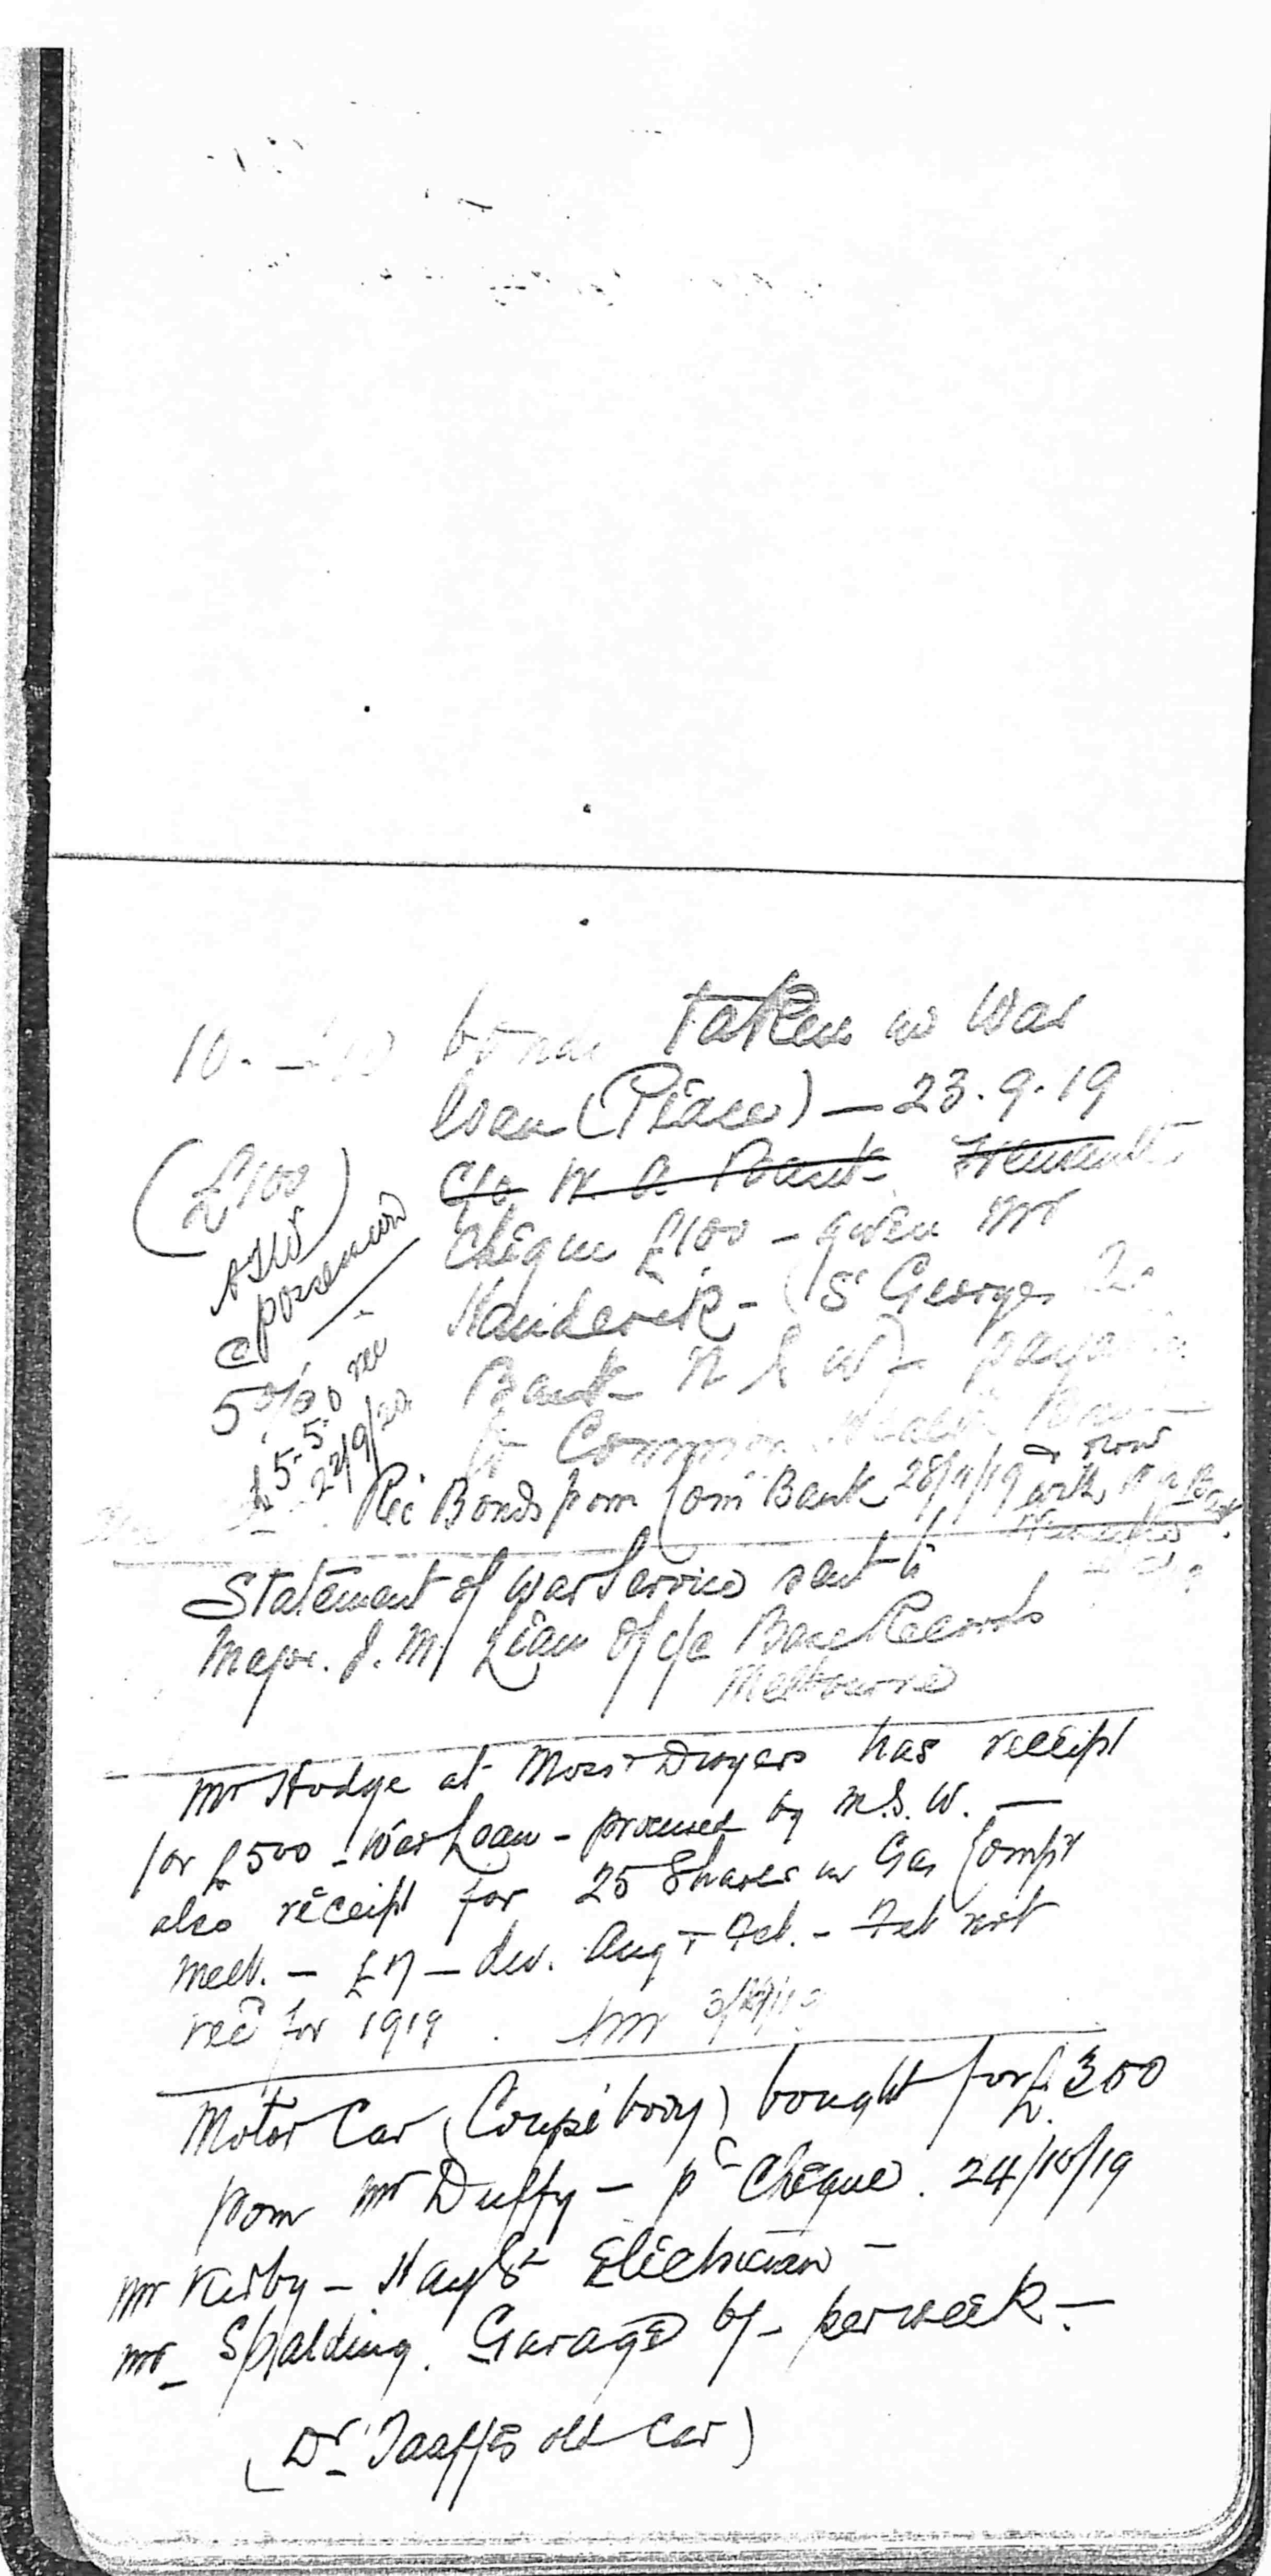 10 - £10 bonds taken in War
Loan (Peace) — 23.9.19
(£100)
c/o W. A. Bank Fremantle
Cheque £100 - given Mr
- (St Georges
Bank N S W) - payable
to Common wealth Bank
possession
5%
rec
£5.5.0
22/9/20
Rec Bonds from Com Bank 28/9/19 & now
with W A Bank
Statement of War Service sent to
Major J. M. Lean Of/c/o Base Records
Melbourne
Mr Hodge at Moss & Dwyers has receipt
for £500 - War Loan - procured by M.S.W. —
also receipt for 25 Shares in Gas Compy
Melb. — £7 — div. Aug & Feb. - Feb not
rec for 1919.
Motor Car (Coupé body) bought for £300
from Mr Duffy — pr Cheque. 24/10/19
Mr Kirby — Hay St Electrician —
Mr Spalding. Garage 6/- per week —
(Dr Taaffe's old Car)